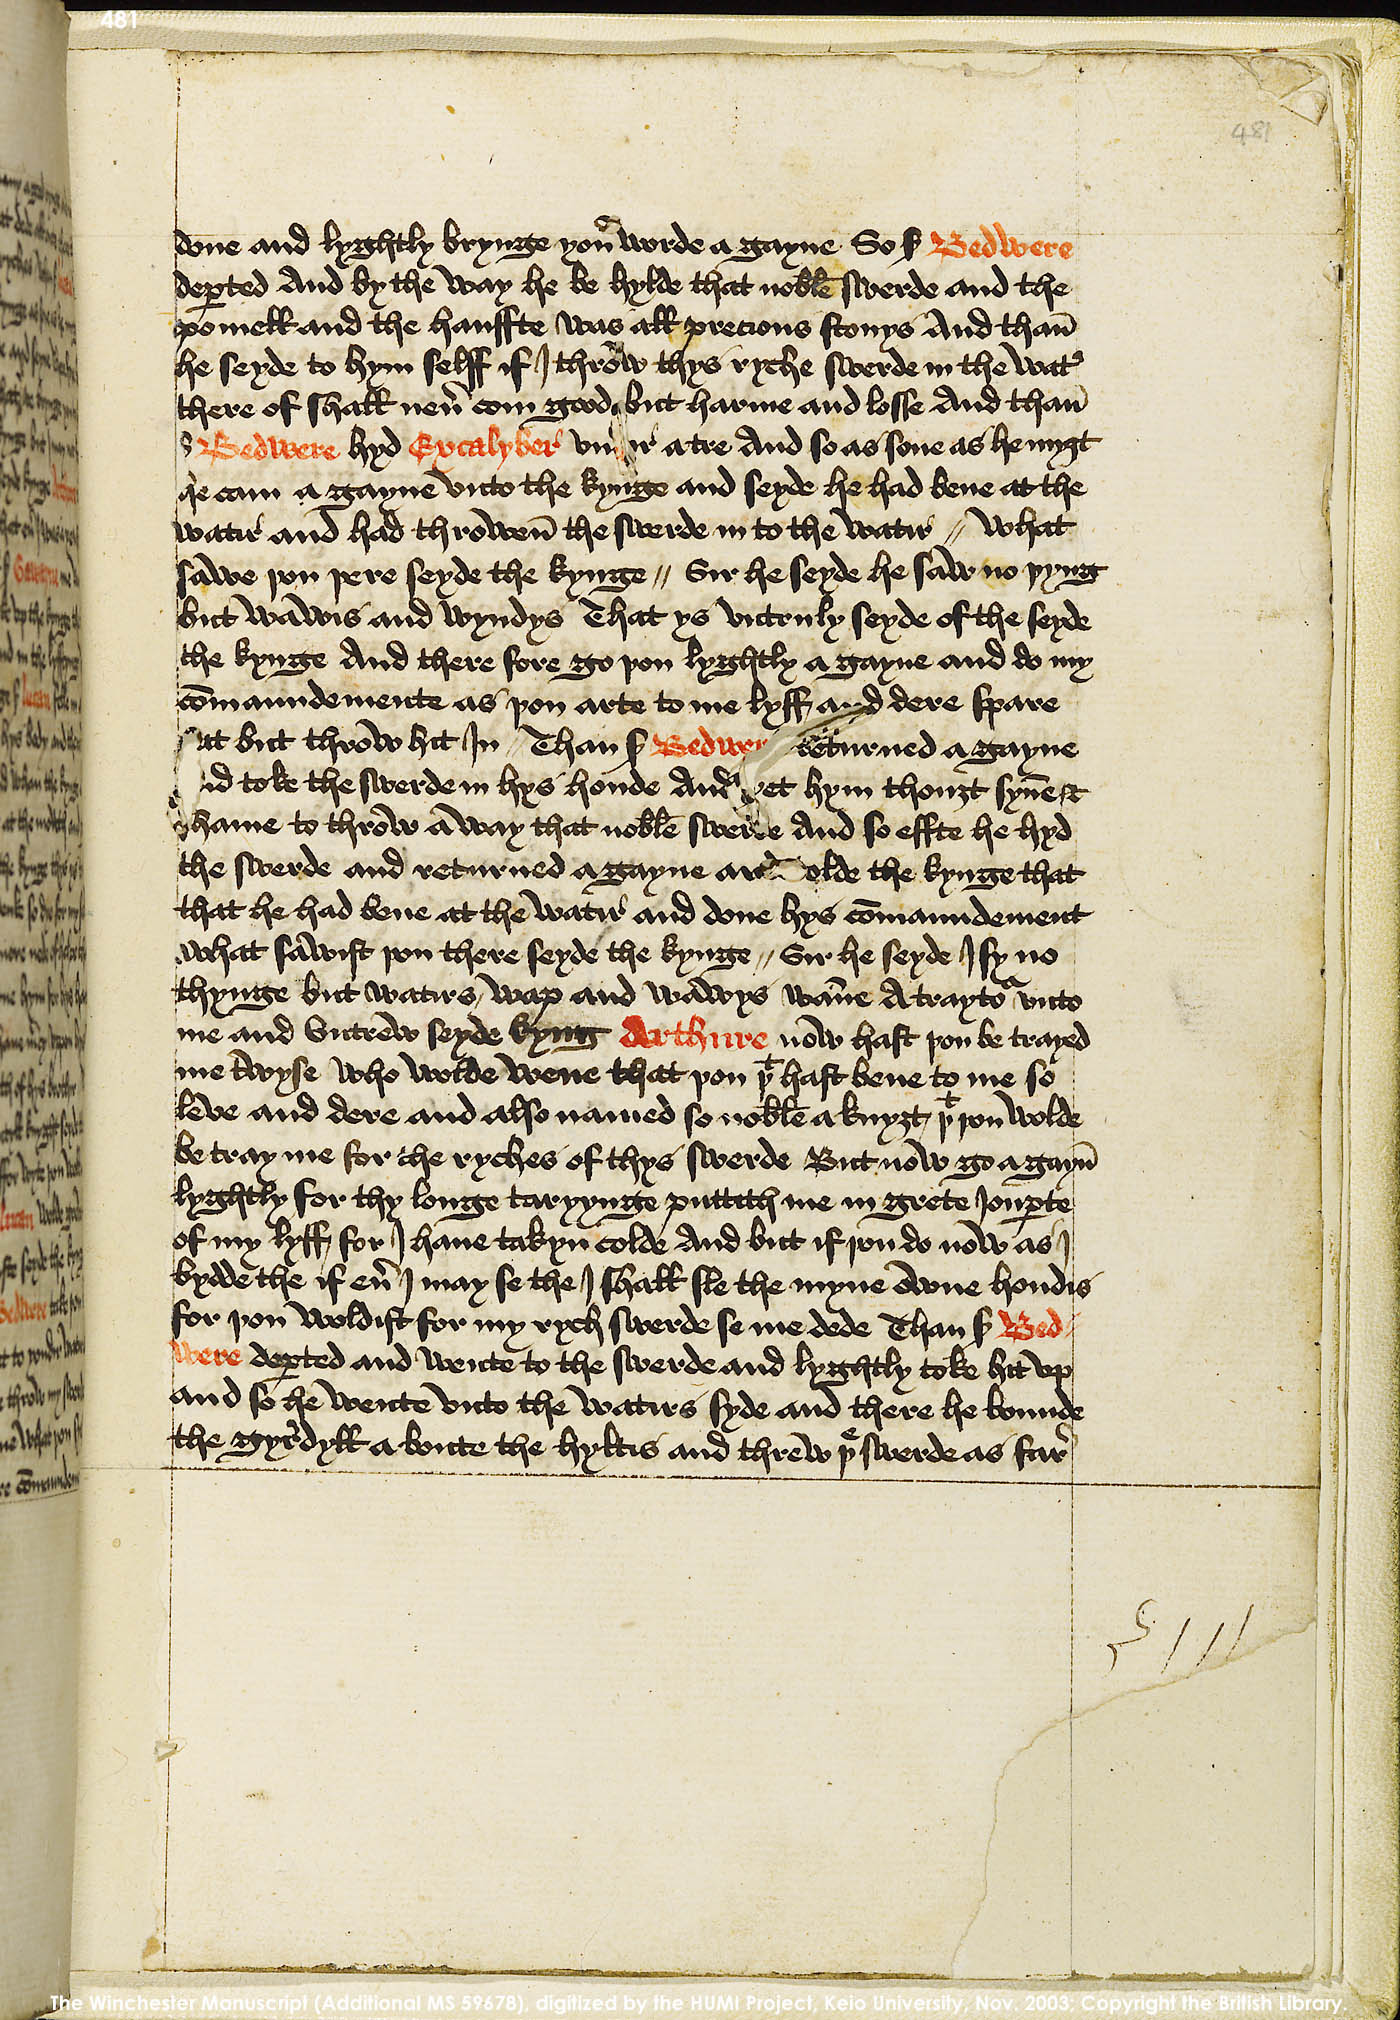 481
481
done and lyghtly brynge you worde a gayne So s Bedwere
deꝑted And by the way he be hylde that noble swerde and the
pomell and the hauffte was all precious stonys And than
he seyde to hym selff if I throw thys ryche swerde in the wat
there of shall neu com good but harme and losse And than
s Bedwere hyd Excalyber a tre And so as sone as he mygt
he cam a gayne vnto the kynge and seyde he had bene at the
watir and had throwen the swerde in to the watir // What
sawe þou þere seyde the kynge // Sir he seyde he saw no þyng
but wawis and wyndys That ys vntruly seyde of the seyde
the kynge And there fore go þou lyghtly a gayne and do my
cōmaundemente as þou arte to me lyff and dere spare
but throw hit In Than s returned a gayne
toke the swerde in hys honde And hym thouȝt synē &
shame to throw a way that noble swerde And so effte he hyd
the swerde and returned a gayne the kynge that
that he had bene at the watir and done hys cōmaundement
what sawist þou there seyde the kynge // Sir he seyde I sy no
thynge but watirs wap and wawys wāne A traytoʳ vnto
me and vntrew seyde kyng Arthure now hast þou be trayed
me twyse who wolde wene that þou þᵗ hast bene to me so
leve and dere and also named so noble a knyȝt þᵗ þou wolde
be tray me for the ryches of thys swerde But now go a gayn
lyghtly for thy longe taryynge puttith me in grete Iouꝑte
of my lyff for I haue takyn colde And but if þou do now as I
bydde the if eu I may se the I shall sle the myne owne hondis
for þou woldist for my rych swerde se me dede Than s Bed
were deꝑted and wente to the swerde and lyghtly toke hit vp
and so he wente vnto the watirs syde and there he bounde
the gyrdyll a boute the hyltis and threw þᵉ swerde as far
The Winchester Manuscript (Additional MS 59678), digitized by the HUMI Project, Keio University, Nov. 2003; Copyright the British Library.